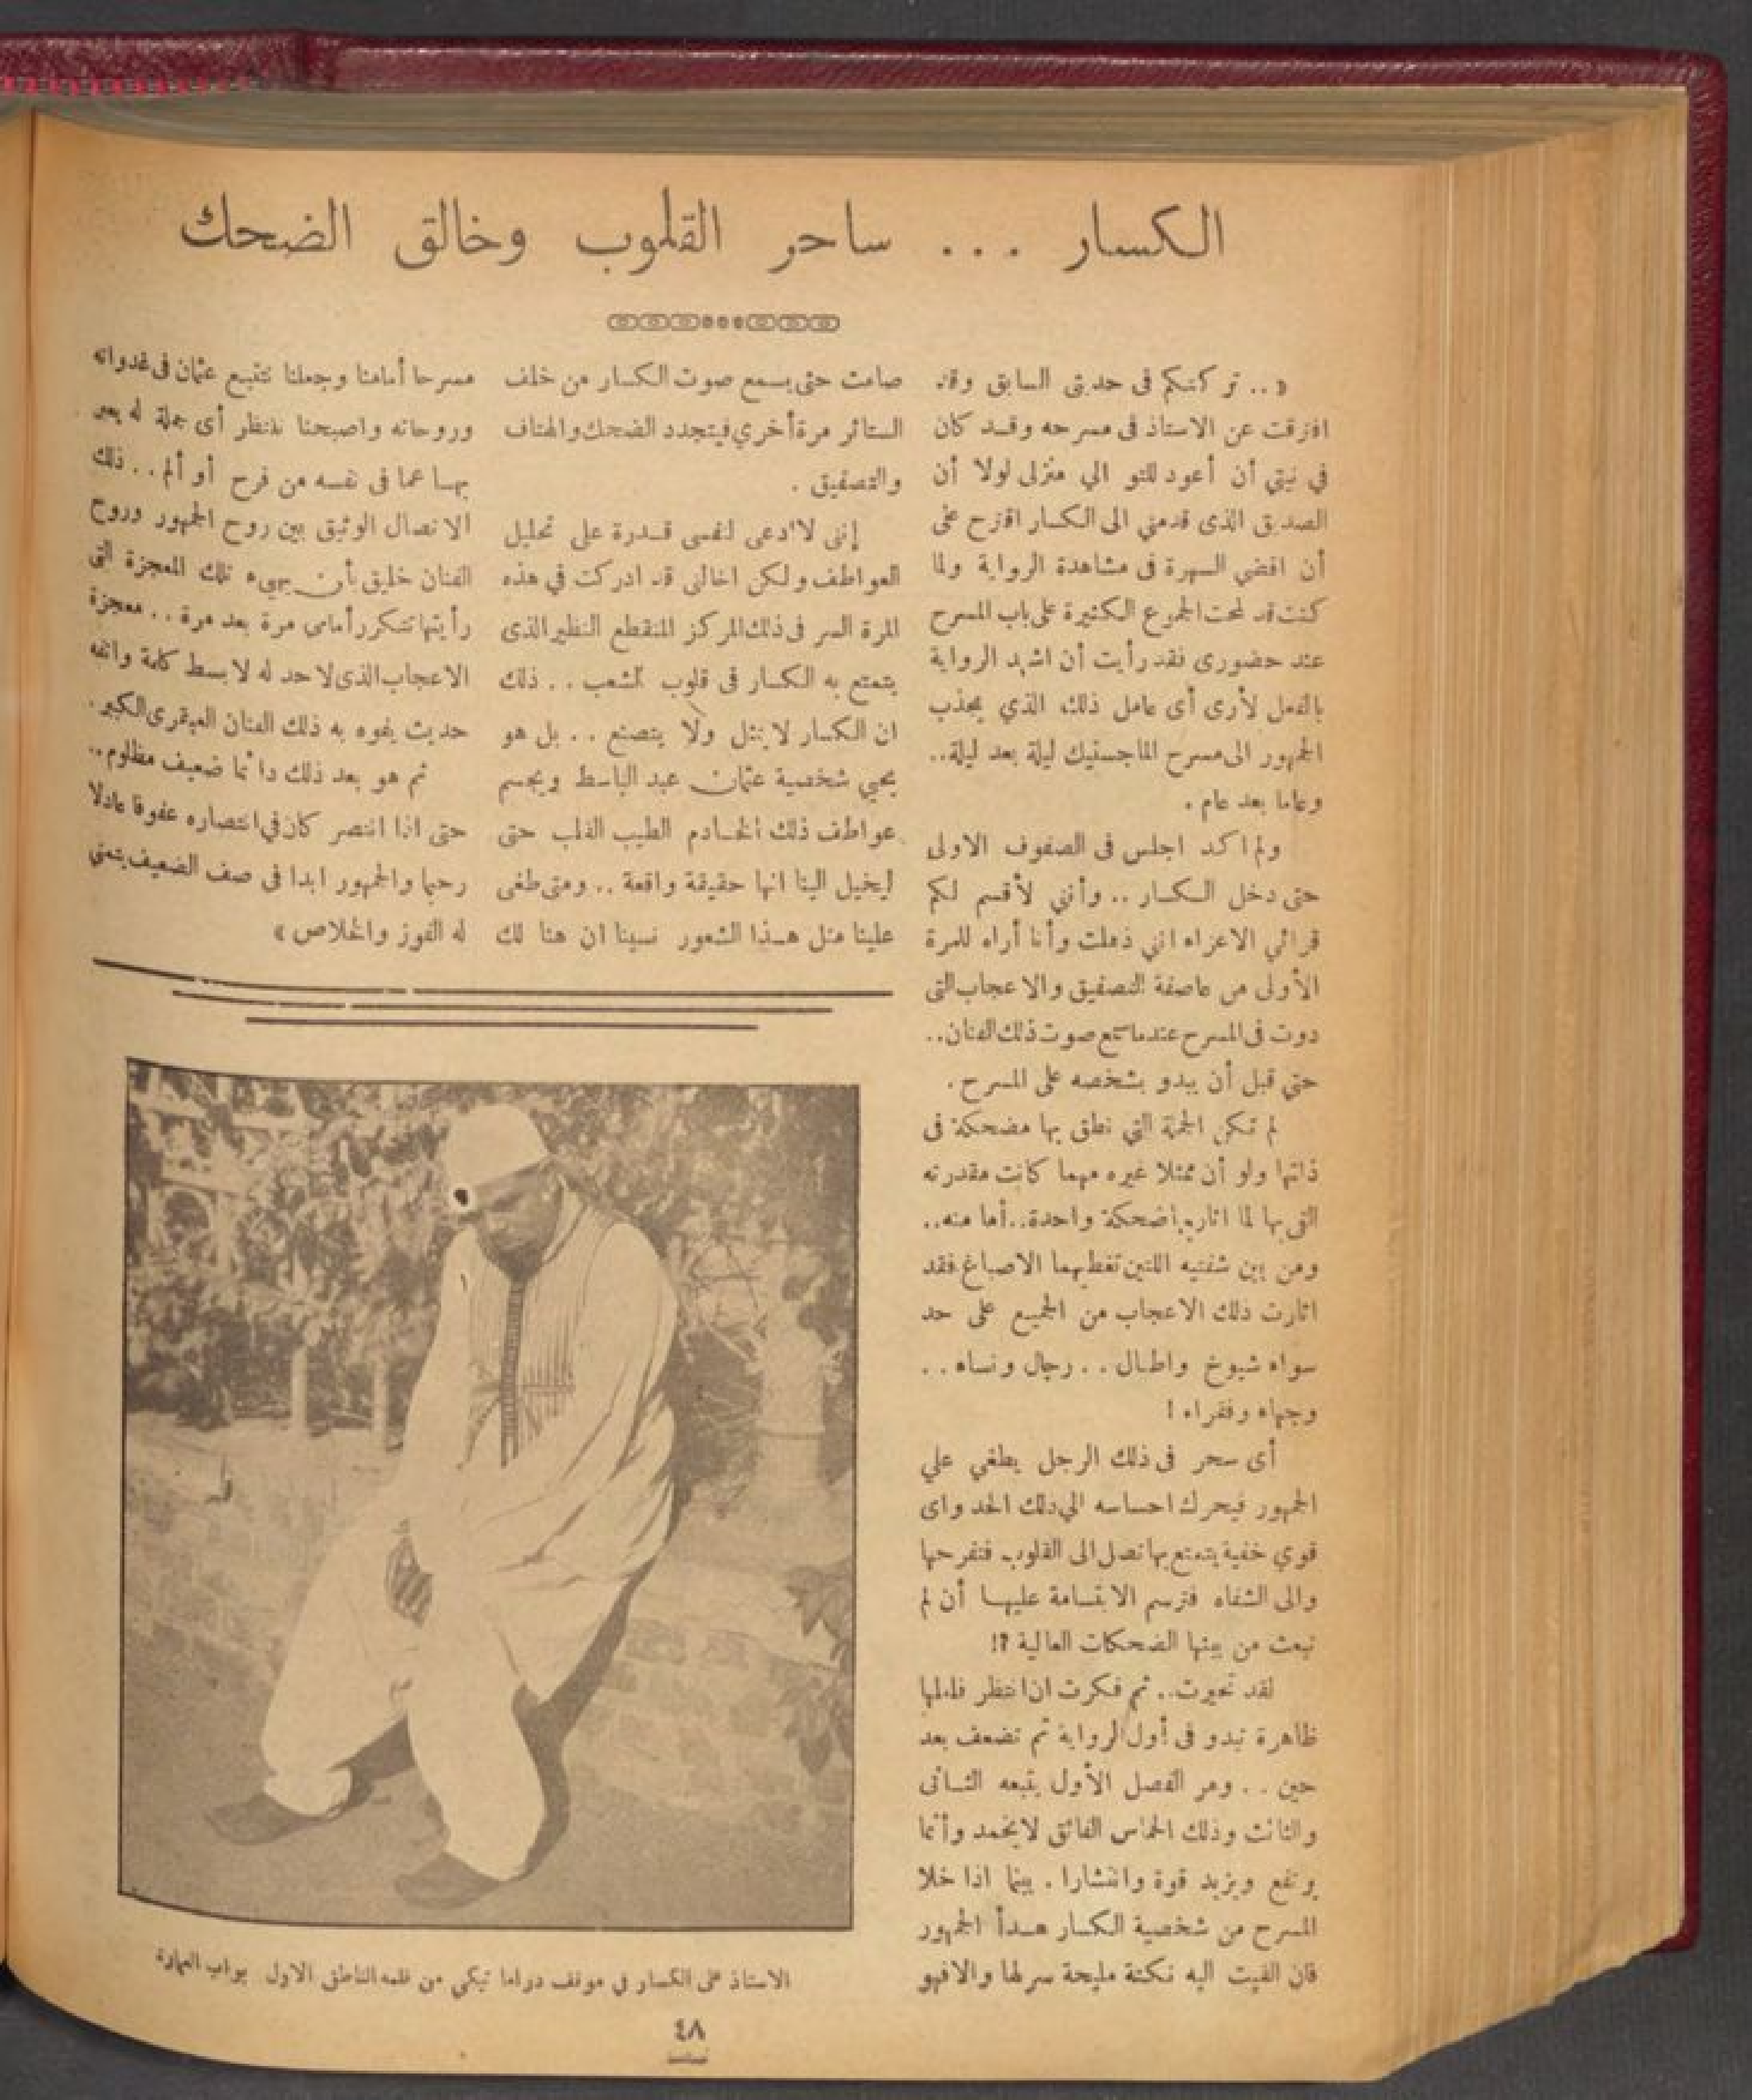 الكسار ... ساحر القلوب وخالق الضحك
« .. تركتكم في حديثي السابق وقد
افترقت عن الاستاذ في مسرحه وقد كان
في نيتي أن أعود للتو الي منزلى لولا أن
الصديق الذى قدمني الى الكسار اقترح على
أن اقضي السهرة فى مشاهدة الرواية ولما
كنت قد لمحت الجموع الكثيرة على باب المسرح
عند حضورى فقد رأيت أن اشهد الرواية
بالفعل لأرى أى عامل ذلك الذي يجذب
الجمهور الى مسرح الماجستيك ليلة بعد ليلة..
وعاما بعد عام .
ولم اكد اجلس فى الصفوف الاولى
حتى دخل الكسار .. وأنني لأقسم لكم
قرائي الاعزاء انني ذهلت وأنا أراه للمرة
الأولى من عاصفة التصفيق والاعجاب التى
دوت فى المسرح عندما سمع صوت ذلك الفنان..
حتى قبل أن يبدو بشخصه على المسرح .
لم تكن الجملة التي نطق بها مضحكة فى
ذاتها ولو أن ممثلا غيره مهما كانت مقدرته
التى بها لما اثار اضحكة واحدة.. أما منه..
ومن بين شفتيه اللتين تغطيهما الاصباغ فقد
اثارت ذلك الاعجاب من الجميع على حد
سواء شيوخ واطال . . رجال ونساء . .
وجهاء وفقراء !
أى سحر فى ذلك الرجل يطغي علي
الجمهور فيحرك احساسه الي ذلك الحد واى
قوي خفية يتمتع بها تصل الى القلوب فتفرحها
والى الشفاه فترسم الابتسامة عليها أن لم
تبعث من بينها الضحكات العالية ؟!
لقد تحيرت.. ثم فكرت ان انتظر فلعلها
ظاهرة تبدو فى أول الرواية ثم تضعف بعد
حين . . ومر الفصل الأول يتبعه الثانى
والثالث وذلك الحماس الفائق لا يخمد وأنما
يرتفع ويزيد قوة وانتشارا . بينما اذا خلا
المسرح من شخصية الكسار هدأ الجمهور
فان القيت اليه نكتة مليحة سر لها والا فهو
صامت حتى يسمع صوت الكسار من خلف
الستائر مرة أخري فيتجدد الضحك والهتاف
والتصفيق .
إننى لا ادعى لنفسى قدرة على تحليل
العواطف ولكن اخالنى قد ادركت في هذه
المرة السر فى ذلك المركز المنقطع النظير الذى
يتمتع به الكسار فى قلوب الشعب . . ذلك
ان الكسار لا يمثل ولا يتصنع . . بل هو
يحيي شخصية عثمان عبد الباسط ويجسم
عواطف ذلك الخادم الطيب القلب حتى
ليخيل الينا انها حقيقة واقعة .. ومتى طغى
علينا مثل هذا الشعور نسينا ان هنا لك
مسرحا أمامنا وجعلنا نتتبع عثمان فى غدواته
وروحاته واصبحنا ننتظر أى جملة له يعبر
بها عما فى نفسه من فرح أو ألم . . ذلك
الاتصال الوثيق بين روح الجمهور وروح
الفنان خليق بأن يهيء تلك المعجزة التى
رأيتها تتكرر أمامى مرة بعد مرة . . معجزة
الاعجاب الذى لا حد له لابسط كلمة واتفه
حديث يفوه به ذلك الفنان العبقرى الكبير .
ثم هو بعد ذلك دائما ضعيف مظلوم ..
حتى اذا انتصر كان في انتصاره عفوفا عادلا
رحيما والجمهور ابدا فى صف الضعيف يتمنى
له الفوز والخلاص »
الاستاذ على الكسار في موقف دراما تبكى من فلمه الناطق الاول بواب العمارة
٤٨